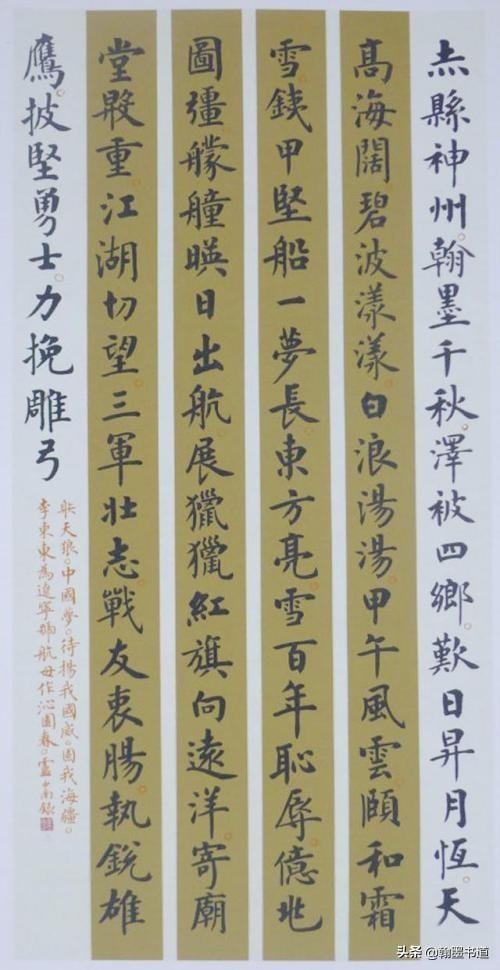 赤縣神州。翰墨千秋。澤被四鄉。歎日昇月恆。天
高海闊。碧波漾漾。白浪湯湯。甲午風雲。頤和霜
雪。銕甲堅船一夢長。東方亮。雪百年恥辱。億兆
圖彊。艨艟暎日出航。展獵獵紅旗向遠洋。寄廟
堂殷重。江湖切望。三軍壯志。戰友衷腸。執銳雄
鷹。披堅勇士。力挽雕弓
射天狼。中國夢。待揚我國威。固我海疆。
李東東為遼寧號航母作沁園春。盧中南錄
头条 @翰墨书道